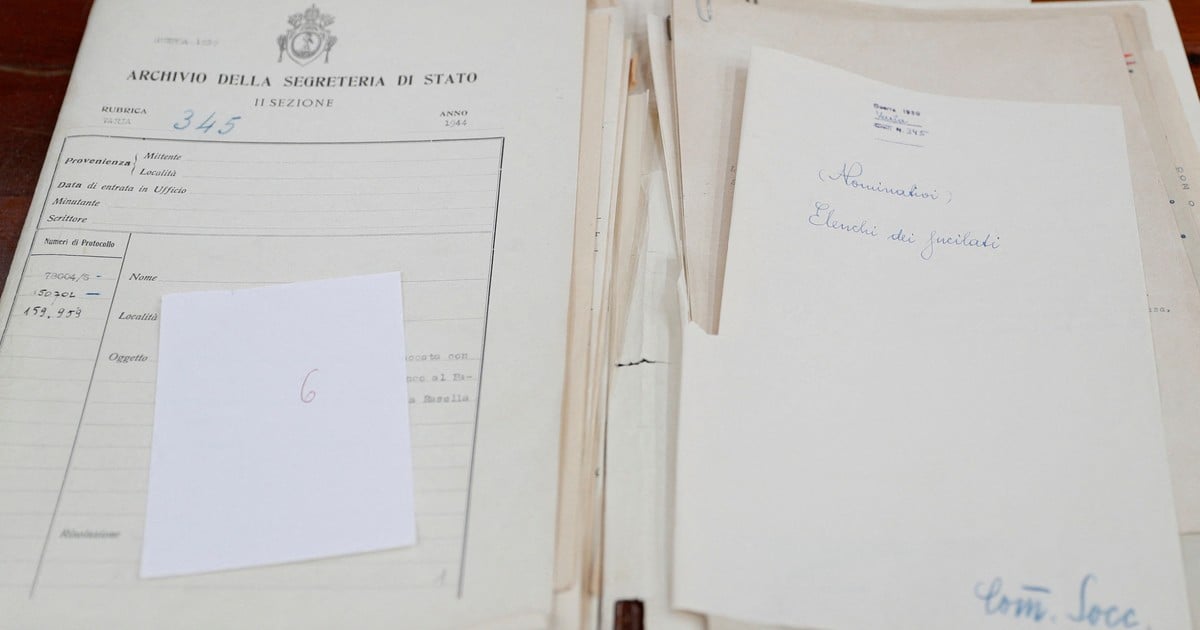 GUERRA 1939
ARCHIVIO DELLA SEGRETERIA DI STATO
II SEZIONE
RUBRICA
VARIA
345
ANNO
1944
Provenienza
Mittente
Località
Data di entrata in Ufficio
Minutante
Scrittore
Numeri di Protocollo
78604/S -
150202 —
159.959
Nome
Località
Oggetto
6
con
nco al Pa-
a Rasella
Risoluzione
1
Guerra 1939
Varia
N. 345
(Nominativi)
Elenchi dei fucilati
Com. Socc.